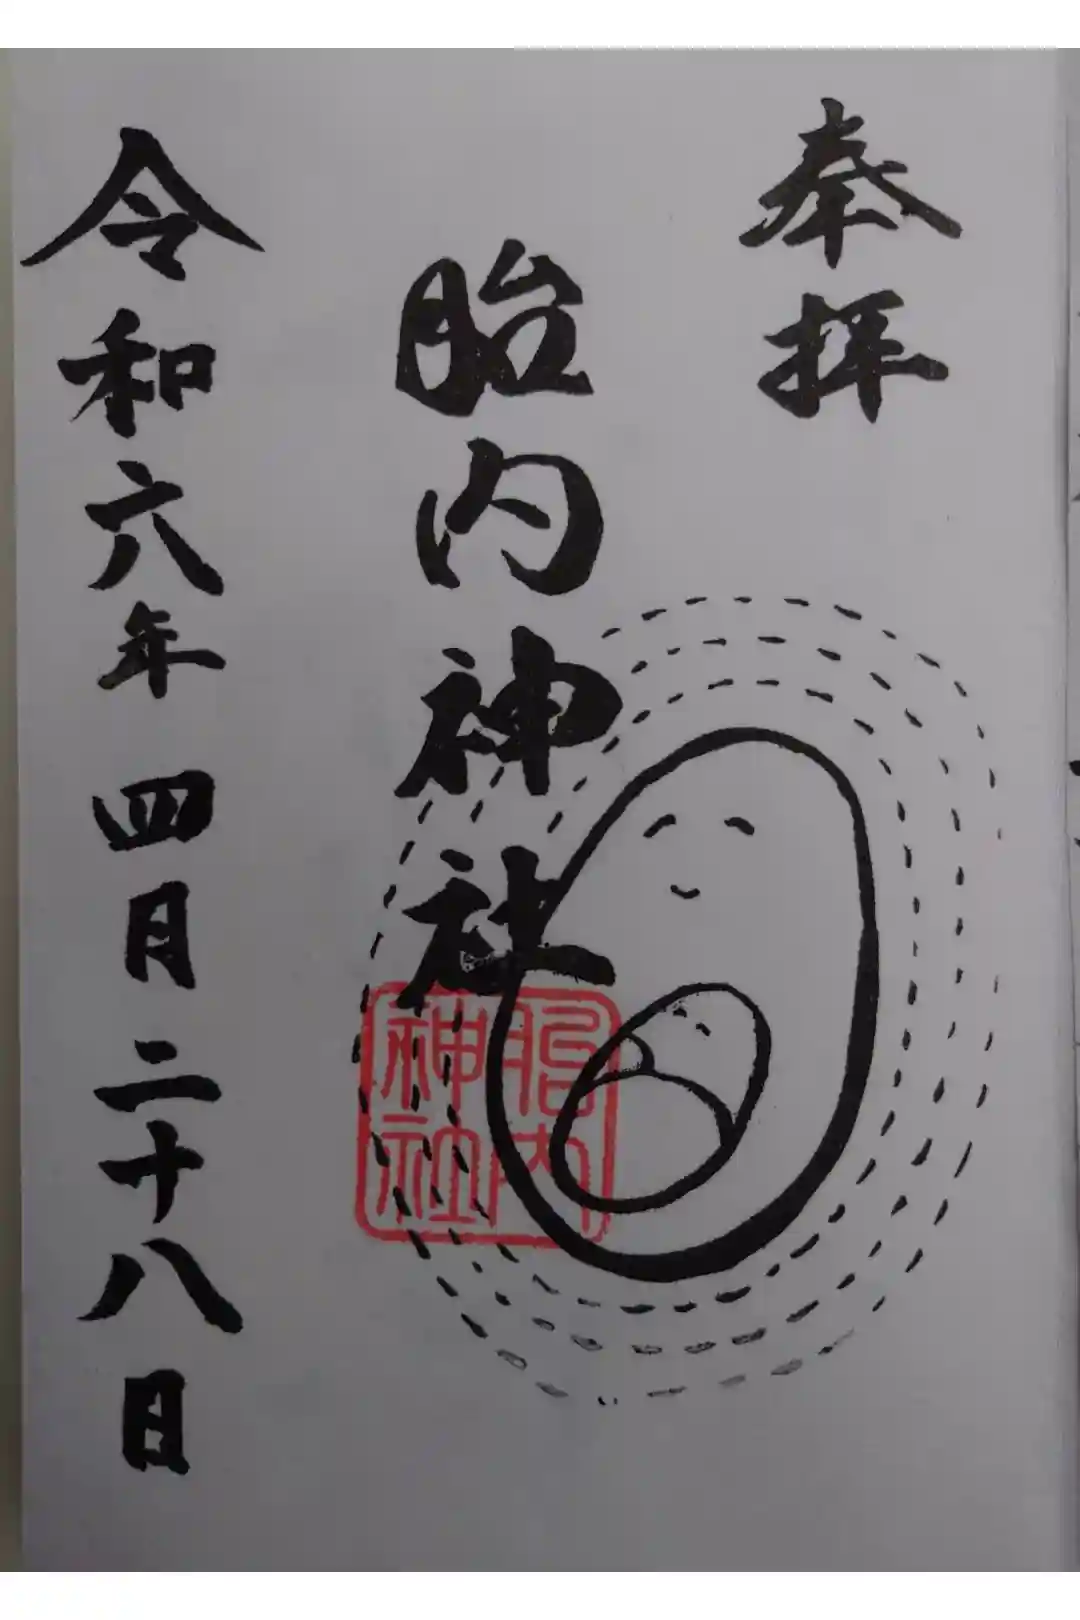 奉拝
胎内神社
胎内神社
令和六年 四月二十八日